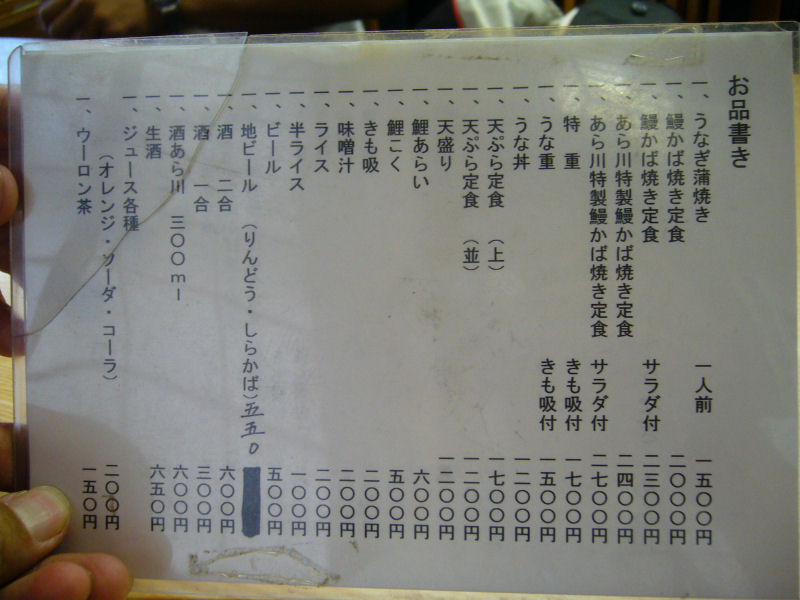 お品書き
一、うなぎ蒲焼き 一人前 一五〇〇円
一、鰻かば焼き定食 二〇〇〇円
一、鰻かば焼き定食 サラダ付 二三〇〇円
一、あら川特製鰻かば焼き定食 二四〇〇円
一、あら川特製鰻かば焼き定食 サラダ付 二七〇〇円
一、特 重 きも吸付 一七〇〇円
一、うな重 きも吸付 一五〇〇円
一、うな丼 一二〇〇円
一、天ぷら定食 (上) 一七〇〇円
一、天ぷら定食 (並) 一二〇〇円
一、天盛り 一二〇〇円
一、鯉あらい 六〇〇円
一、鯉こく 五〇〇円
一、きも吸 二〇〇円
一、味噌汁 二〇〇円
一、ライス 二〇〇円
一、半ライス 一〇〇円
一、ビール 五〇〇円
一、地ビール (りんどう・しらかば)五五0
一、酒 二合 六〇〇円
一、酒 一合 三〇〇円
一、酒あら川 三〇〇ml 六〇〇円
一、生酒 六五〇円
一、ジュース各種
(オレンジ・ソーダ・コーラ) 二〇〇円
一、ウーロン茶 一五〇円